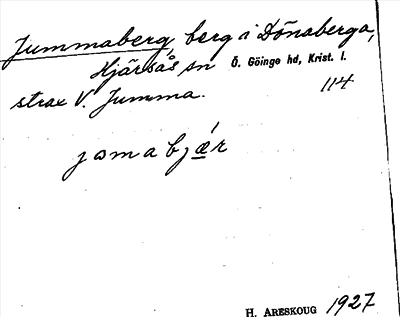 Jummaberg, berg i Dönaberga,
Hjärsås sn Ö. Göinge hd, Krist. l.
strax V. Jumma. 114
jomabjǽr
H. ARESKOUG 1927